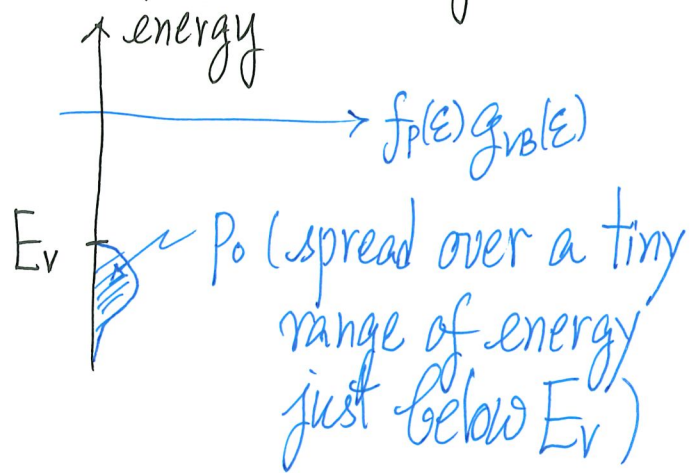 energy
fₚ(ε) g_VB(ε)
E_V
p₀ (spread over a tiny
range of energy
just below E_V)